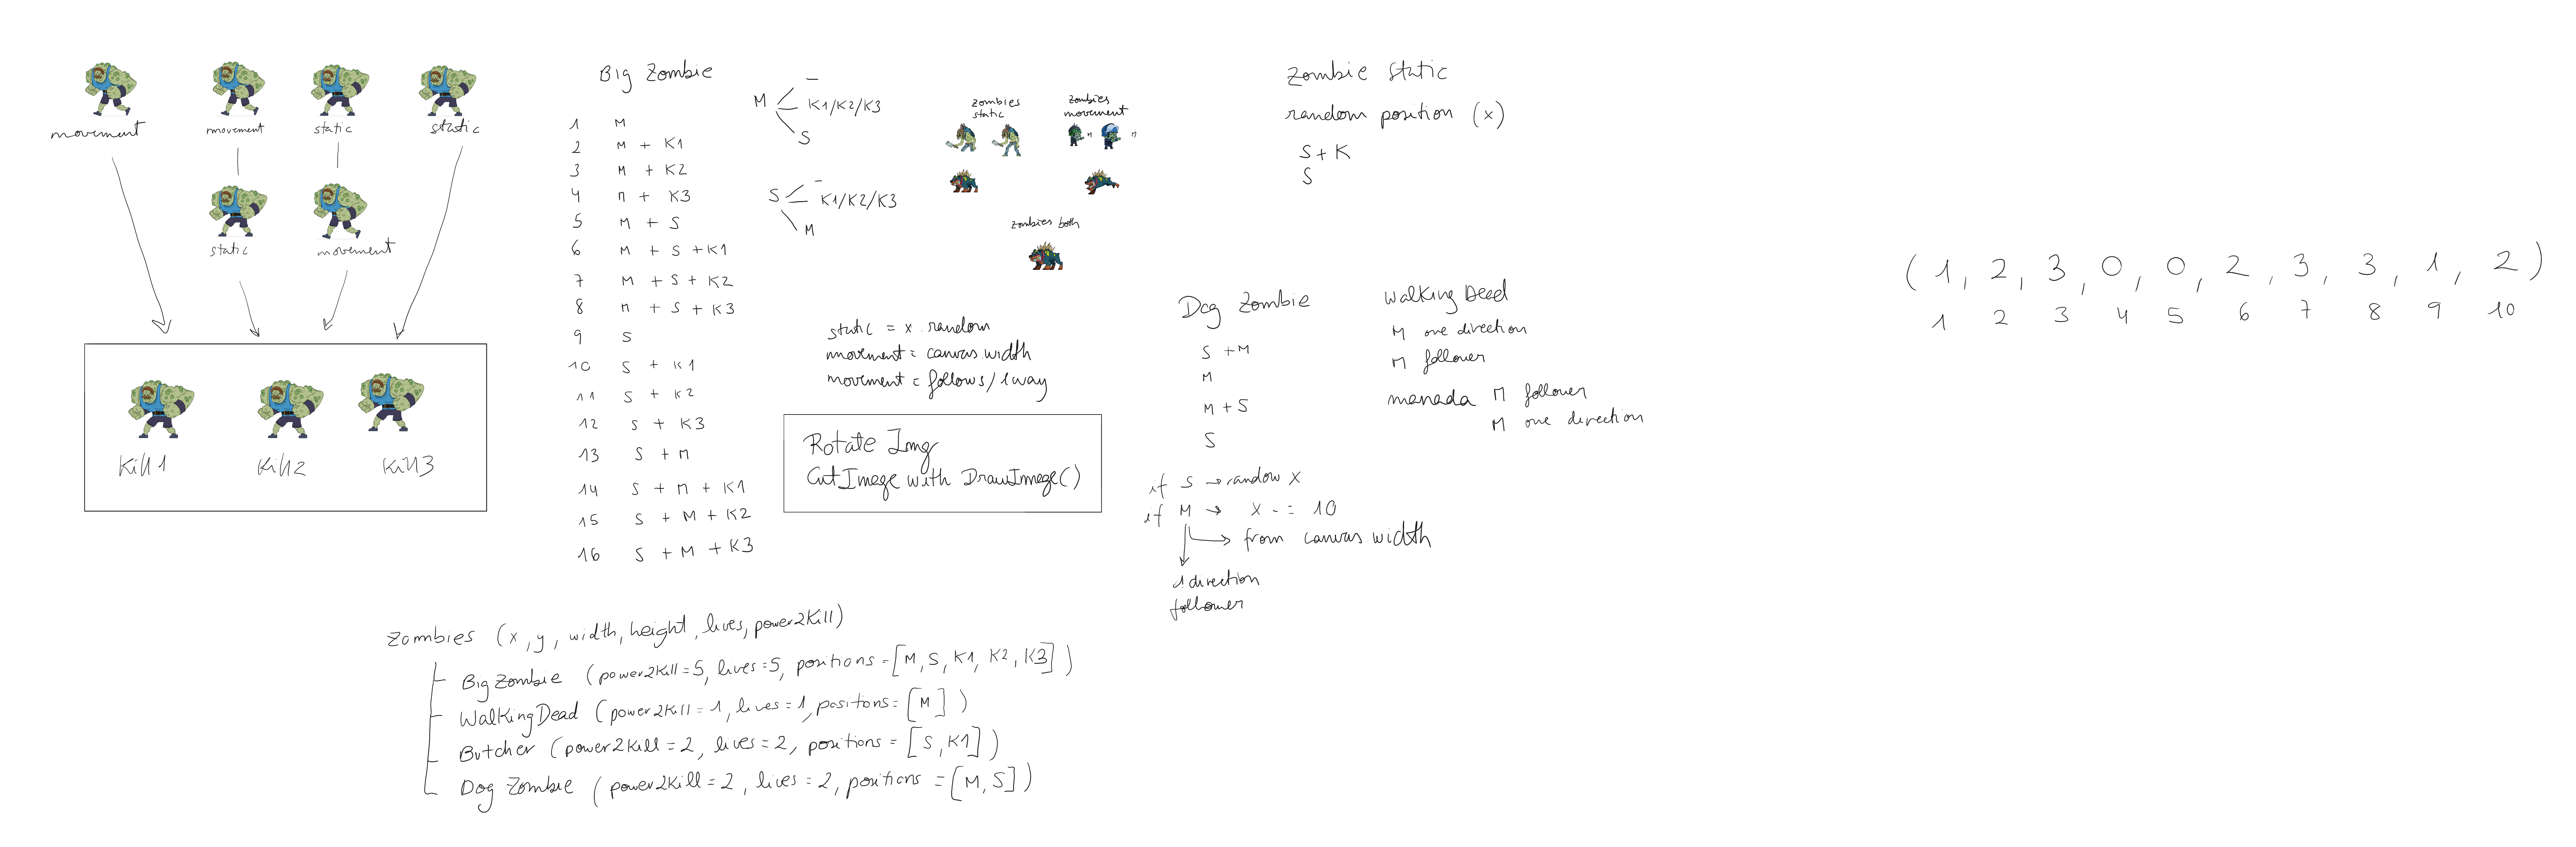 movement
movement
static
static
static
movement
Kill1
Kill2
Kill3
Big Zombie
1 M
2 M + K1
3 M + K2
4 M + K3
5 M + S
6 M + S + K1
7 M + S + K2
8 M + S + K3
9 S
10 S + K1
11 S + K2
12 S + K3
13 S + M
14 S + M + K1
15 S + M + K2
16 S + M + K3
M
–
K1/K2/K3
S
S
–
K1/K2/K3
M
zombies
static
zombies
movement
M
M
zombies both
static = x random
movement = canvas width
movement = follows/1way
Rotate Img
CutImage with DrawImage()
Zombie static
random position (x)
S + K
S
Dog Zombie
S + M
M
M + S
S
if S → random x
if M → x -= 10
from canvas width
1 direction
follower
Walking Dead
M one direction
M follower
manada M follower
M one direction
(1, 2, 3, 0, 0, 2, 3, 3, 1, 2)
1 2 3 4 5 6 7 8 9 10
Zombies (x, y, width, height, lives, power2Kill)
BigZombie (power2Kill=5, lives=5, positions=[M, S, K1, K2, K3])
WalkingDead (power2Kill=1, lives=1, positions=[M])
Butcher (power2Kill=2, lives=2, positions=[S, K1])
Dog Zombie (power2Kill=2, lives=2, positions=[M, S])